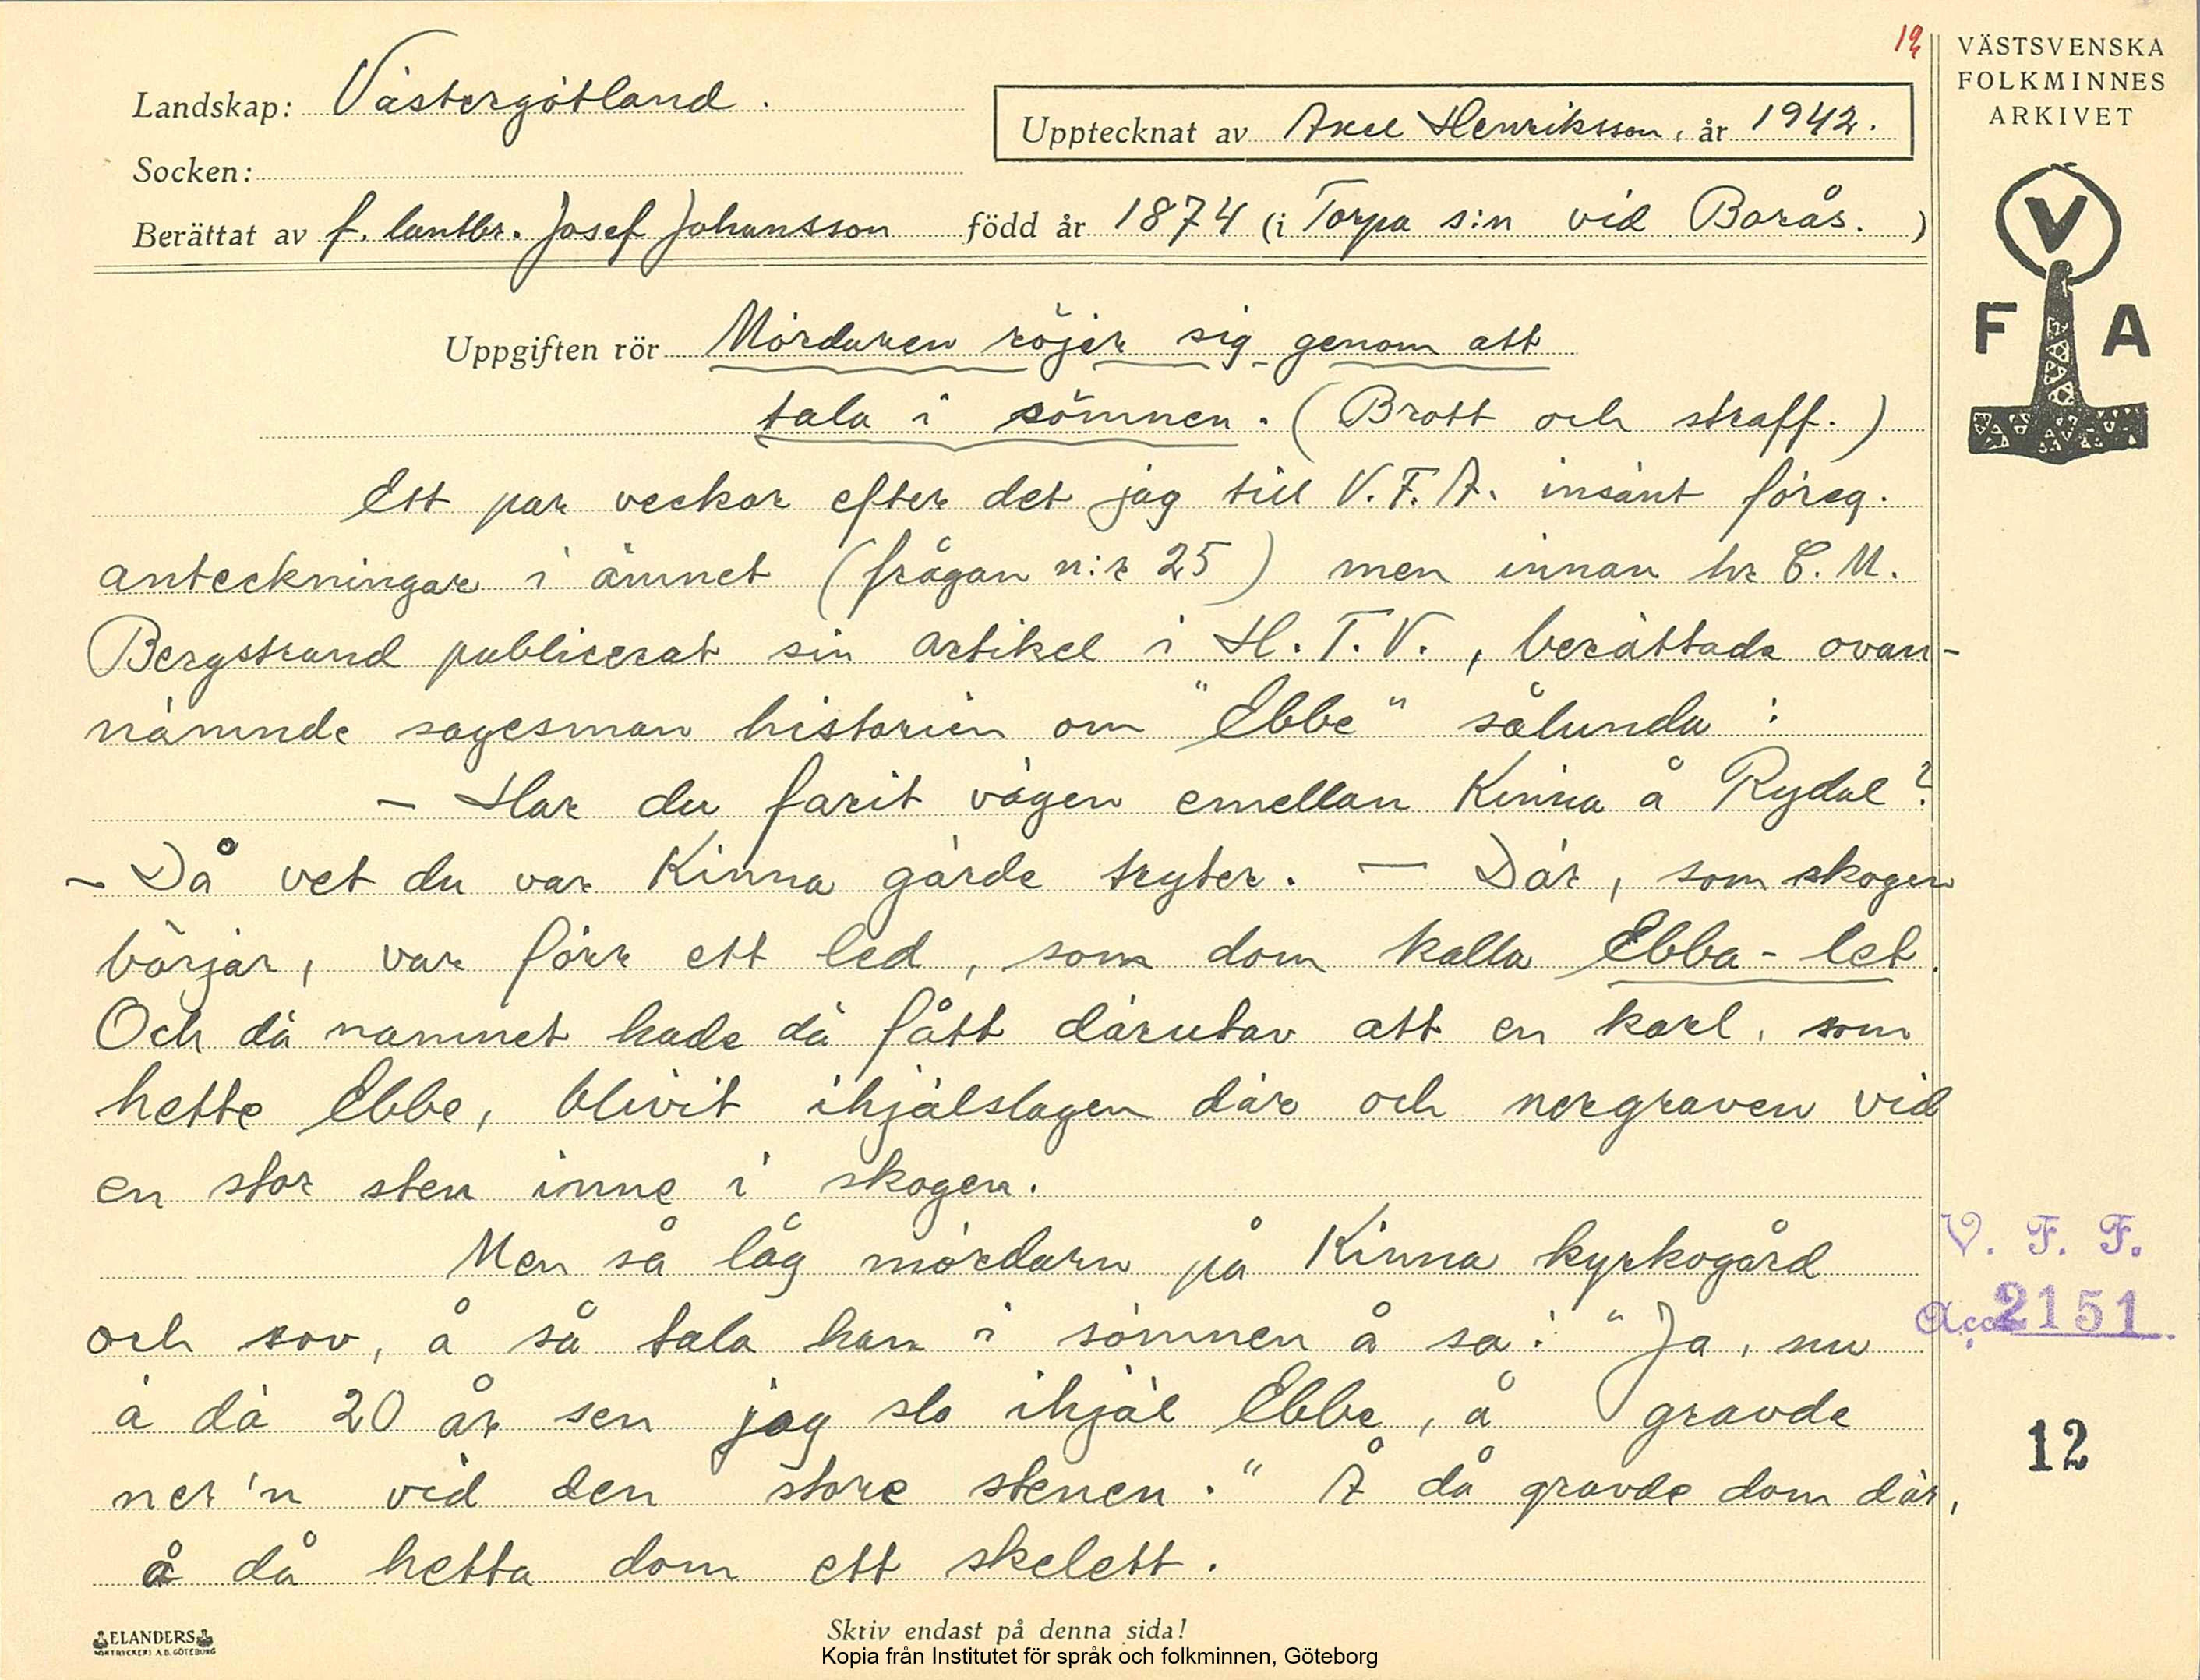 12
VÄSTSVENSKA
FOLKMINNES
ARKIVET
Landskap: Västergötland.
Upptecknat av Axel Henriksson, år 1942.
Socken:
Berättat av f. lantbr. Josef Johansson född år 1874 (i Torpa s:n vid Borås.)
V
F A
Uppgiften rör Mördaren röjer sig genom att
tala i sömnen. (Brott och straff.)
Ett par veckor efter det jag till V.F.A. insänt föreg.
anteckningar i ämnet (frågan n:r 25) men innan hr C.M.
Bergstrand publicerat sin artikel i H.T.V., berättade ovan-
nämnde sagesman historien om "Ebbe" sålunda:
- Har du farit vägen emellan Kinna å Rydal?
- Då vet du var Kinna gärde tryter. - Där, som skogen
börjar, var förr ett led, som dom kalla Ebba-let.
Och dä namnet hade dä fått därutav att en karl, som
hette Ebbe, blivit ihjälslagen där och nergraven vid
en stor sten inne i skogen.
Men så låg mördarn på Kinna kyrkogård
och sov, å så tala han i sömnen å sa: "Ja, nu
ä dä 20 år sen jag slo ihjäl Ebbe, å gravde
ner'n vid den store stenen." Å då gravde dom där,
å då hetta dom ett skelett.
V. F. F.
Acc. 2151
12
ELANDERS
BOKTRYCKERI A.B. GÖTEBORG
Skriv endast på denna sida!
Kopia från Institutet för språk och folkminnen, Göteborg